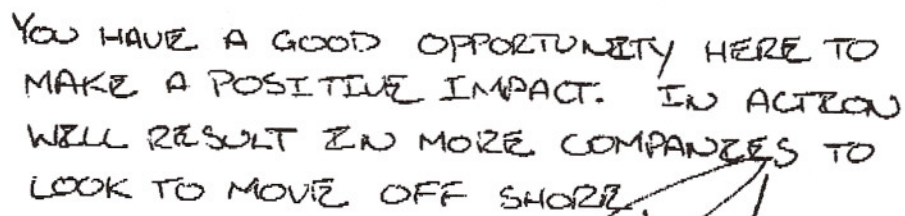 YOU HAVE A GOOD OPPORTUNITY HERE TO
MAKE A POSITIVE IMPACT. IN ACTION
WILL RESULT IN MORE COMPANIES TO
LOOK TO MOVE OFF SHORE